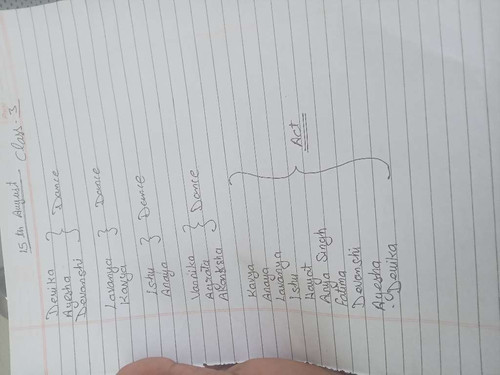 15th August - Class - 3
Devika
Ayesha } Dance
Devanshi
Lavanya } Dance
Kavya
Ishu } Dance
Anaya
Vaanika
} Dance
Akanksha
Kavya
Anaya
Lavanya
Ishu
Act
Anya Singh
Fatima
Devanshi
Ayesha
- Devika